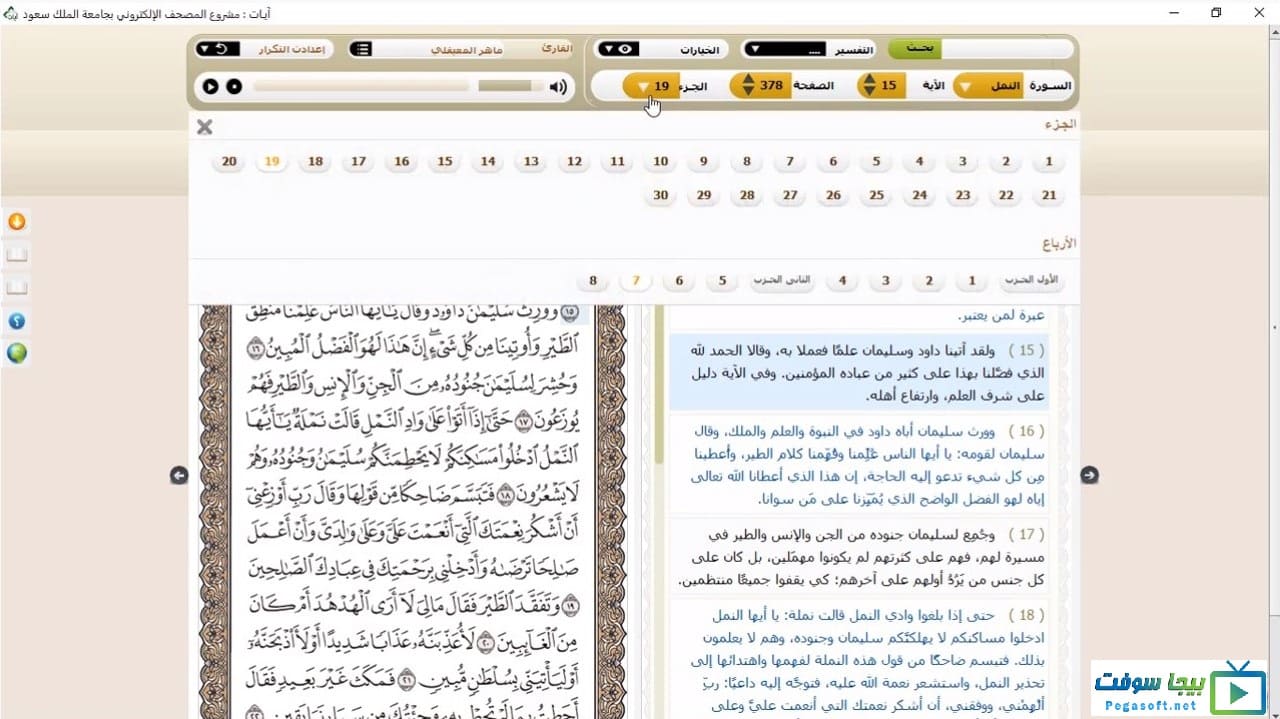 آيات : مشروع المصحف الإلكتروني بجامعة الملك سعود
بحث
التفسير ...
الخيارات
القارئ ماهر المعيقلي
إعدادت التكرار
السورة النمل
الآية 15
الصفحة 378
الجزء 19
الجزء
1 2 3 4 5 6 7 8 9 10 11 12 13 14 15 16 17 18 19 20
21 22 23 24 25 26 27 28 29 30
الأرباع
الأول الحزب 1 2 3 4 الثاني الحزب 5 6 7 8
عبرة لمن يعتبر.
( 15 ) ولقد آتينا داود وسليمان علمًا فعملا به، وقالا الحمد لله
الذي فضَّلنا بهذا على كثير من عباده المؤمنين. وفي الآية دليل
على شرف العلم، وارتفاع أهله.
( 16 ) وورث سليمان أباه داود في النبوة والعلم والملك، وقال
سليمان لقومه: يا أيها الناس عُلِّمنا وفُهِّمنا كلام الطير، وأُعطينا
مِن كل شيء تدعو إليه الحاجة، إن هذا الذي أعطانا الله تعالى
إياه لهو الفضل الواضح الذي يُمَيِّزنا على مَن سوانا.
( 17 ) وجُمِع لسليمان جنوده من الجن والإنس والطير في
مسيرة لهم، فهم على كثرتهم لم يكونوا مهمَلين، بل كان على
كل جنس من يَرُدُّ أولهم على آخرهم؛ كي يقفوا جميعًا منتظمين.
( 18 ) حتى إذا بلغوا وادي النمل قالت نملة: يا أيها النمل
ادخلوا مساكنكم لا يهلكنَّكم سليمان وجنوده، وهم لا يعلمون
بذلك. فتبسم ضاحكًا من قول هذه النملة لفهمها واهتدائها إلى
تحذير النمل، واستشعر نعمة الله عليه، فتوجَّه إليه داعيًا: ربِّ
ألْهِمْني، ووفقني، أن أشكر نعمتك التي أنعمت عليَّ وعلى
١٥ وَوَرِثَ سُلَيْمَٰنُ دَاوُۥدَ وَقَالَ يَٰٓأَيُّهَا ٱلنَّاسُ عُلِّمْنَا مَنطِقَ
ٱلطَّيْرِ وَأُوتِينَا مِن كُلِّ شَىْءٍ إِنَّ هَٰذَا لَهُوَ ٱلْفَضْلُ ٱلْمُبِينُ ١٦
وَحُشِرَ لِسُلَيْمَٰنَ جُنُودُهُۥ مِنَ ٱلْجِنِّ وَٱلْإِنسِ وَٱلطَّيْرِ فَهُمْ
يُوزَعُونَ ١٧ حَتَّىٰٓ إِذَآ أَتَوْا۟ عَلَىٰ وَادِ ٱلنَّمْلِ قَالَتْ نَمْلَةٌ يَٰٓأَيُّهَا
ٱلنَّمْلُ ٱدْخُلُوا۟ مَسَٰكِنَكُمْ لَا يَحْطِمَنَّكُمْ سُلَيْمَٰنُ وَجُنُودُهُۥ وَهُمْ
لَا يَشْعُرُونَ ١٨ فَتَبَسَّمَ ضَاحِكًا مِّن قَوْلِهَا وَقَالَ رَبِّ أَوْزِعْنِىٓ
أَنْ أَشْكُرَ نِعْمَتَكَ ٱلَّتِىٓ أَنْعَمْتَ عَلَىَّ وَعَلَىٰ وَٰلِدَىَّ وَأَنْ أَعْمَلَ
صَٰلِحًا تَرْضَىٰهُ وَأَدْخِلْنِى بِرَحْمَتِكَ فِى عِبَادِكَ ٱلصَّٰلِحِينَ
١٩ وَتَفَقَّدَ ٱلطَّيْرَ فَقَالَ مَا لِىَ لَآ أَرَى ٱلْهُدْهُدَ أَمْ كَانَ
مِنَ ٱلْغَآئِبِينَ ٢٠ لَأُعَذِّبَنَّهُۥ عَذَابًا شَدِيدًا أَوْ لَأَا۟ذْبَحَنَّهُۥٓ
أَوْ لَيَأْتِيَنِّى بِسُلْطَٰنٍ مُّبِينٍ ٢١ فَمَكَثَ غَيْرَ بَعِيدٍ فَقَالَ
بيجا سوفت
Pegasoft.net